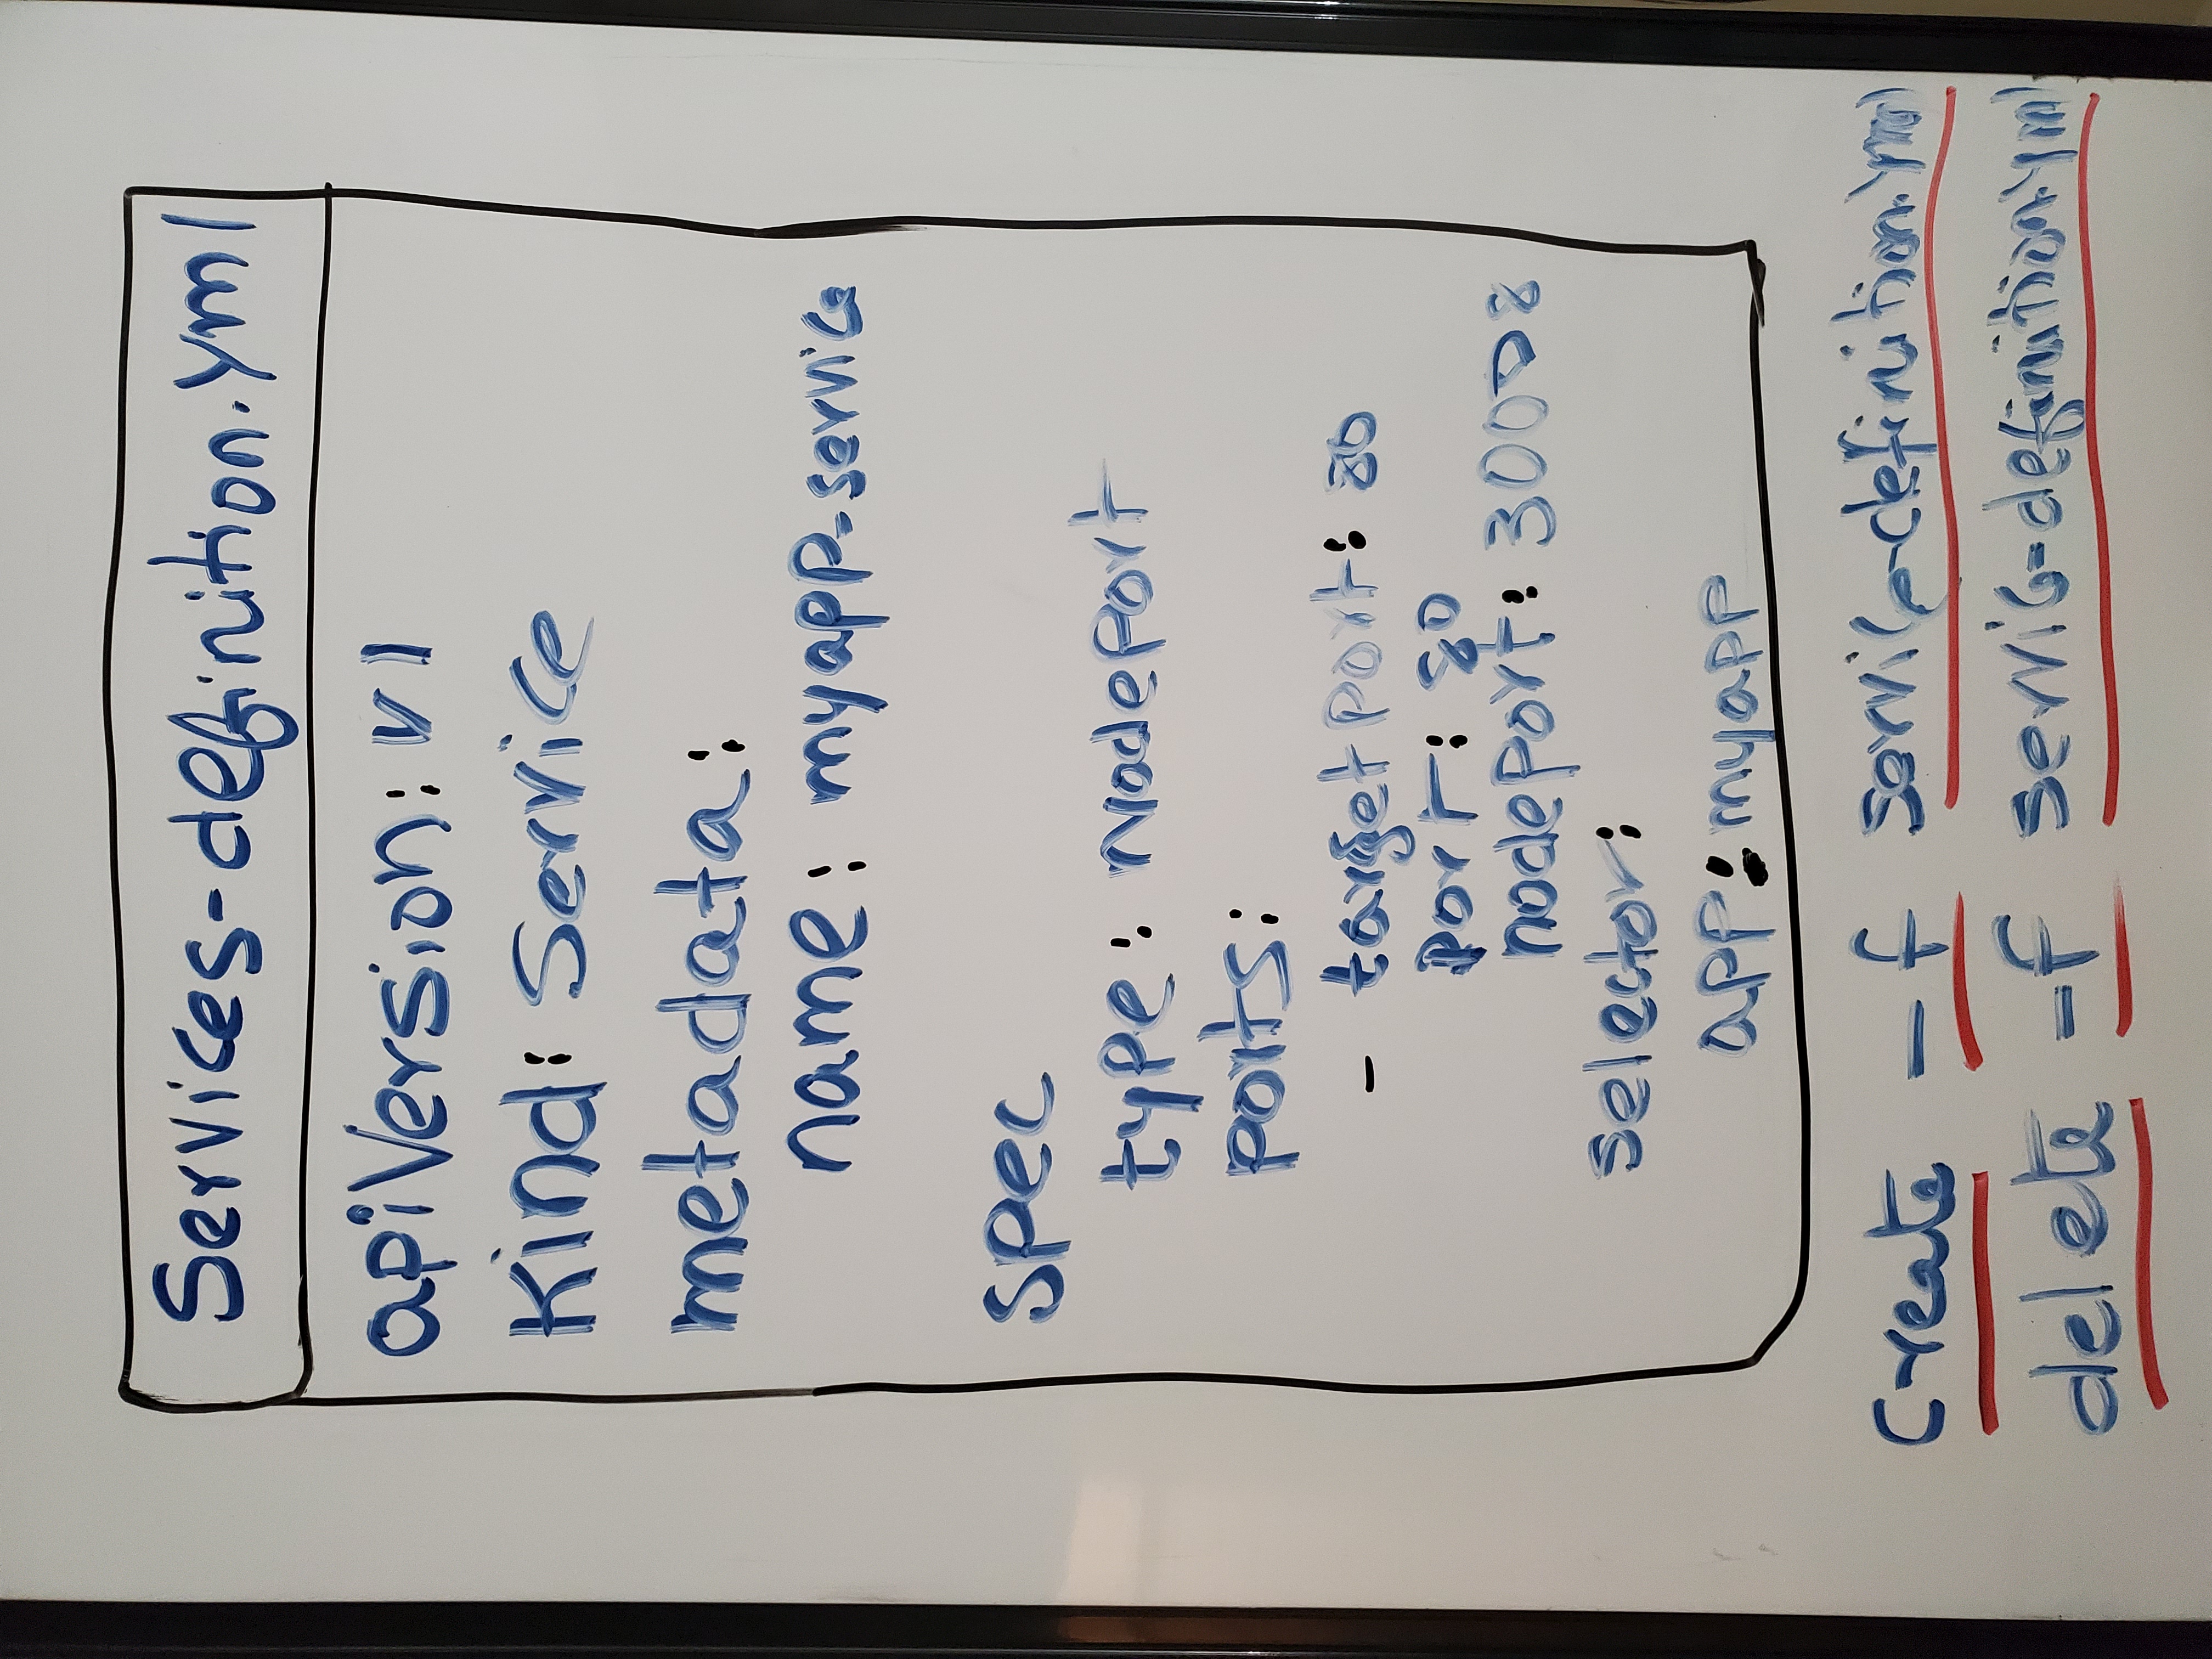 Services-definition.yml
apiVersion: v1
Kind: Service
metadata:
name: myapp-service
spec
type: NodePort
ports:
- targetPort: 80
port: 80
nodePort: 30008
selector:
app: myapp
create -f service-definition.yml
delete -f service-definition.yml